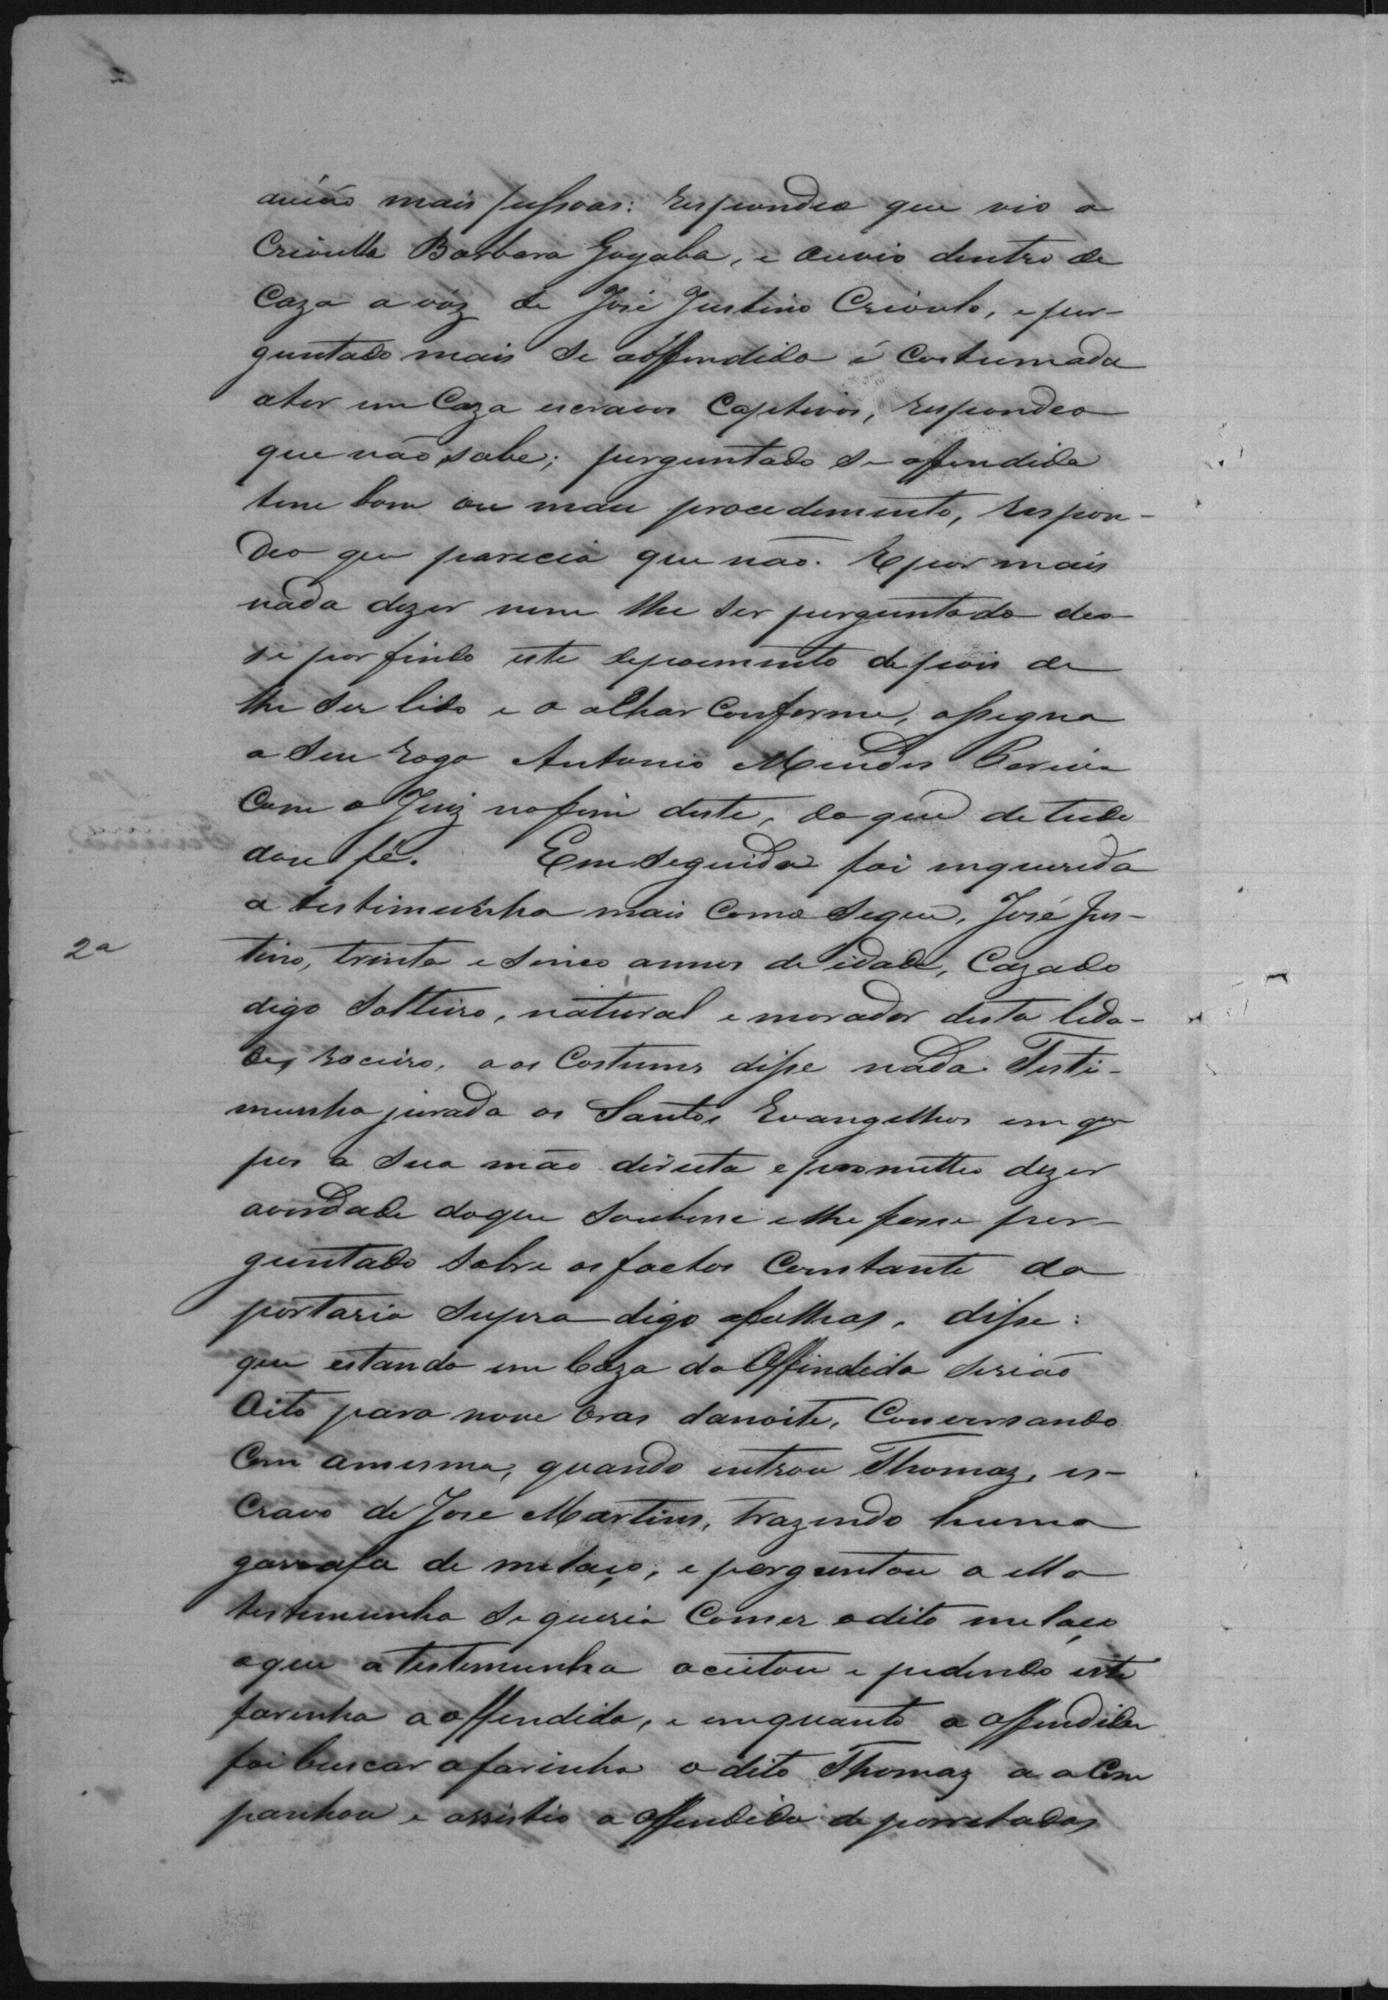 avião mais pessoas: respondeo que vio a
Crioulla Barbara Goyaba, e ouvio dentro de
Caza a vóz de José Justino Crioulo, e per-
guntado mais se aoffendida é Costumada
ater em Caza escravos Captivos, respondeo
que não sabe; perguntado se offendida
tem bom ou mau procedimento, respon-
deo que parecia que não. E por mais
nada dizer nem lhe ser perguntado deo
se por findo este depoimento depois de
lhe ser lido e o alhar Conforme, assigna
a seu rogo Antonio Mendes Pereira
Com o Juiz nofim deste, do que de tudo
dou fé. Em seguida foi inquerida
a testimunha mais Como segue, José Jus-
2ª
tino, trinta e sinco annos de idade, Cazado
digo Solteiro, natural e morador desta Cida-
de, roceiro, aos Costumes disse nada. Testi-
munha jurada os Santos Evangelhos em que
pos a sua mão direita e prometteo dizer
averdade doque soubesse elhe fosse per-
guntado sobre osfactos Constante da
portaria supra digo afolhas, disse:
que estando em Caza da Offindida serião
Oito para nove Oras danoite, Conversando
Com amesma, quando entrou Thomaz, es-
Cravo de Jose Martins, trazendo huma
garrafa de melaço, e perguntou a ella
testemunha se queria Comer odito melaço
aque atestemunha aceitou e pedindo este
farinha a offendida, e enquanto a offendida
foi buscar afarinha o dito Thomaz a aCom
panhou e assistio a offendida de porretadas